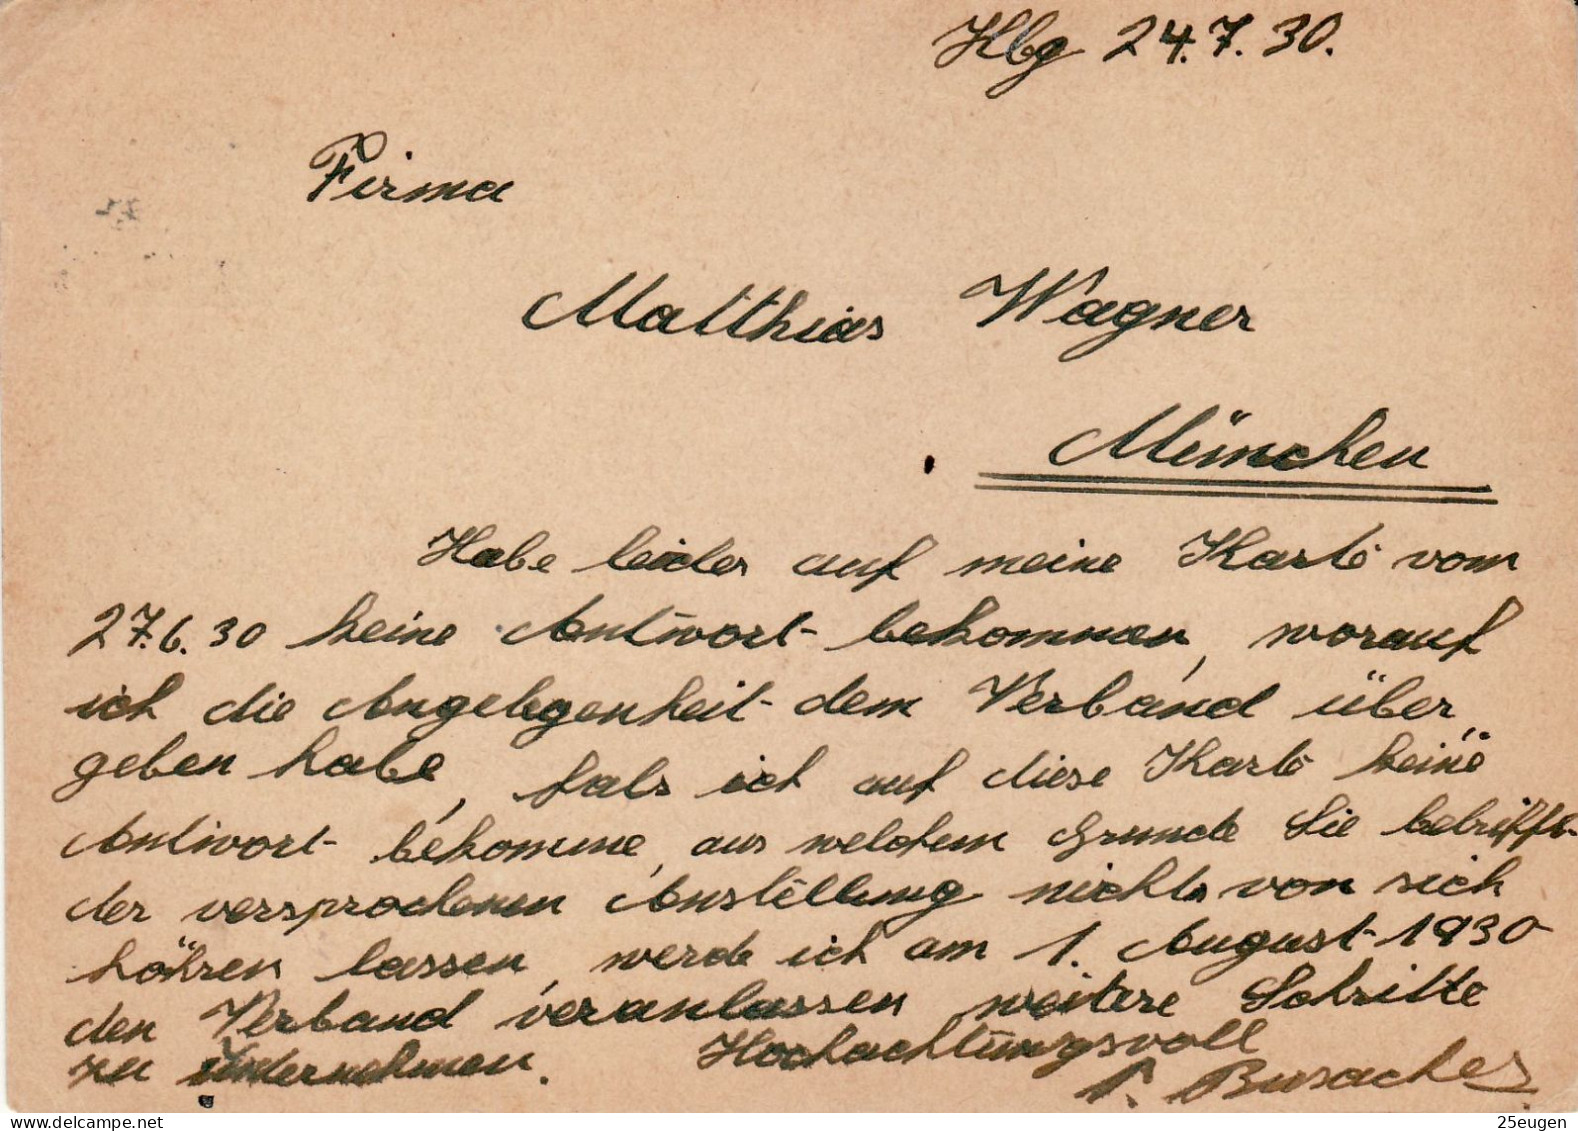 Hbg 24.7.30.
Firma
Matthias Wagner
München
Habe leider auf meine Karte vom
27.6.30 keine Antwort bekommen, worauf
ich die Angelegenheit dem Verband über
geben habe, fals ich auf diese Karte keine
Antwort bekomme, aus welchem Grunde Sie betrifft
der versprochenen Anstellung nichts von sich
höhren lassen, werde ich am 1. August 1930
den Verband veranlassen weitere Schritte
zu unternehmen. Hochachtungsvoll
25eugen